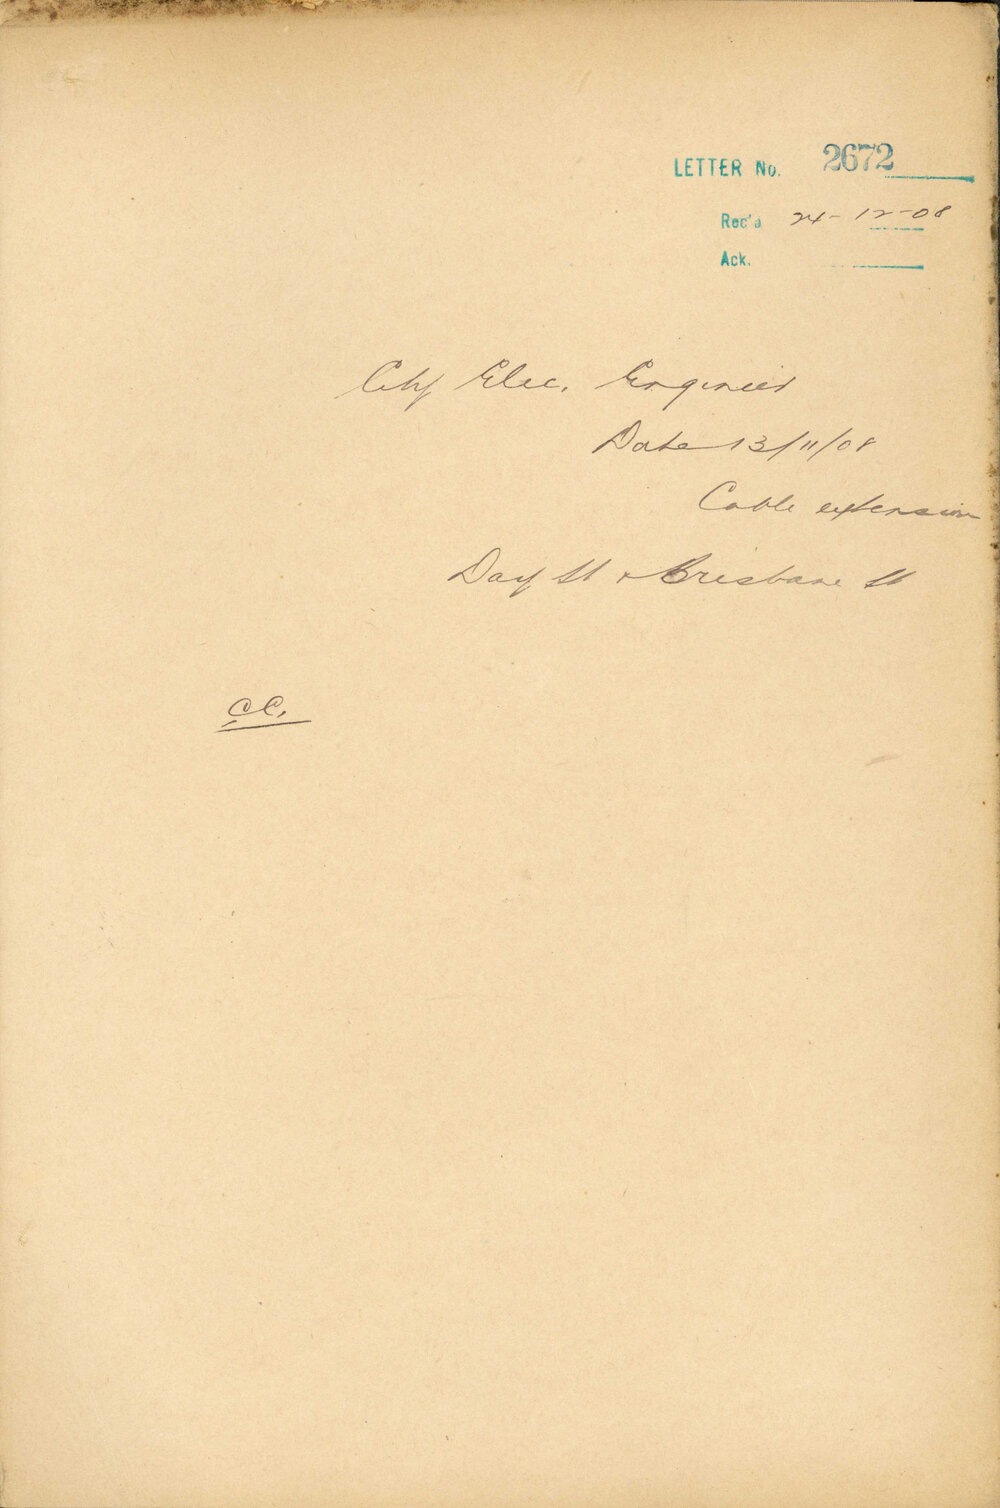 LETTER No. 2672
Rec'd 24-12-08
Ack.
City Elec. Engineer
Date 13/11/08
Cable extension
Day St & Brisbane St
CC.